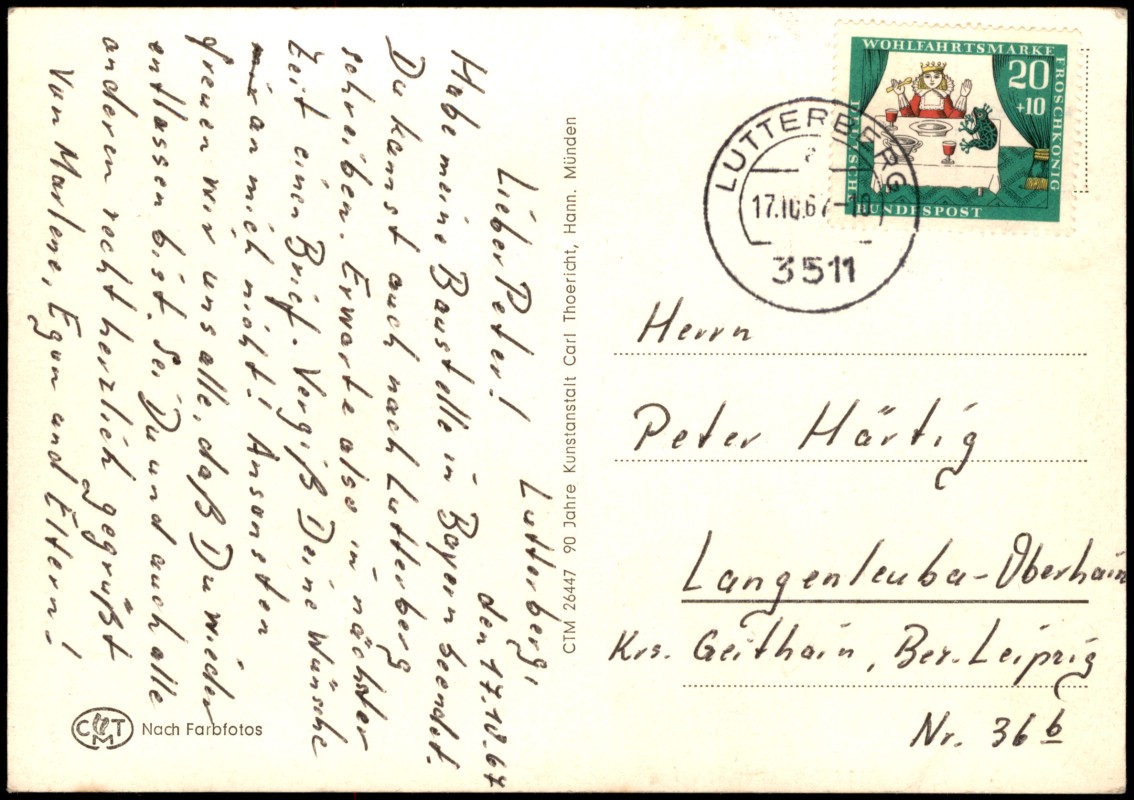 Lutterberg,
den 17.10.67
Lieber Peter!
Habe meine Baustelle in Bayern beendet.
Du kannst auch nach Lutterberg
schreiben. Erwarte also in nächster
Zeit einen Brief. Vergiß Deine Wünsche
an mich nicht! Ansonsten
freuen wir uns alle, daß Du wieder
entlassen bist. Sei Du und auch alle
anderen recht herzlich gegrüßt
Von Marlene, Egon und Eltern!
CTM
Nach Farbfotos
CTM 26447 90 Jahre Kunstanstalt Carl Thoericht, Hann. Münden
WOHLFAHRTSMARKE
FROSCHKÖNIG
20
+10
DEUTSCHE
BUNDESPOST
LUTTERBERG
a
17.10.67-10
3511
Herrn
Peter Härtig
Langenleuba-Oberhain
Krs. Geithain, Bez. Leipzig
Nr. 36b